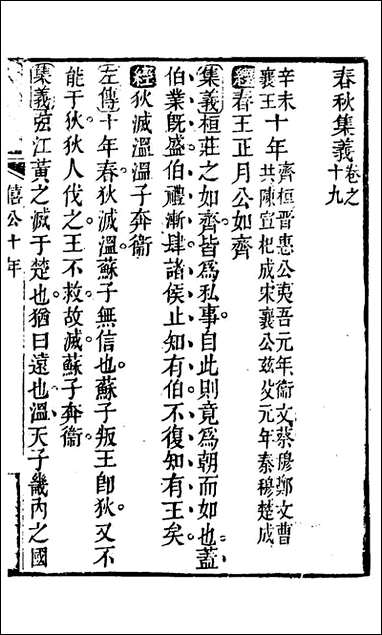 春秋集義卷之十九
辛未
襄王十年齊桓晉惠公夷吾元年衞文蔡穆鄭文曹
共陳宣杞成宋襄公玆父元年秦穆楚成
經春王正月公如齊
集義桓莊之如齊皆爲私事自此則竟爲朝而如也蓋
伯業旣盛伯禮漸肆諸侯止知有伯不復知有王矣
經狄滅溫溫子奔衞
左傳十年春狄滅溫蘇子無信也蘇子叛王卽狄又不
能于狄狄人伐之王不救故滅蘇子奔衞
集義弦江黃之滅于楚也猶曰遠也溫天子畿內之國
僖公十年